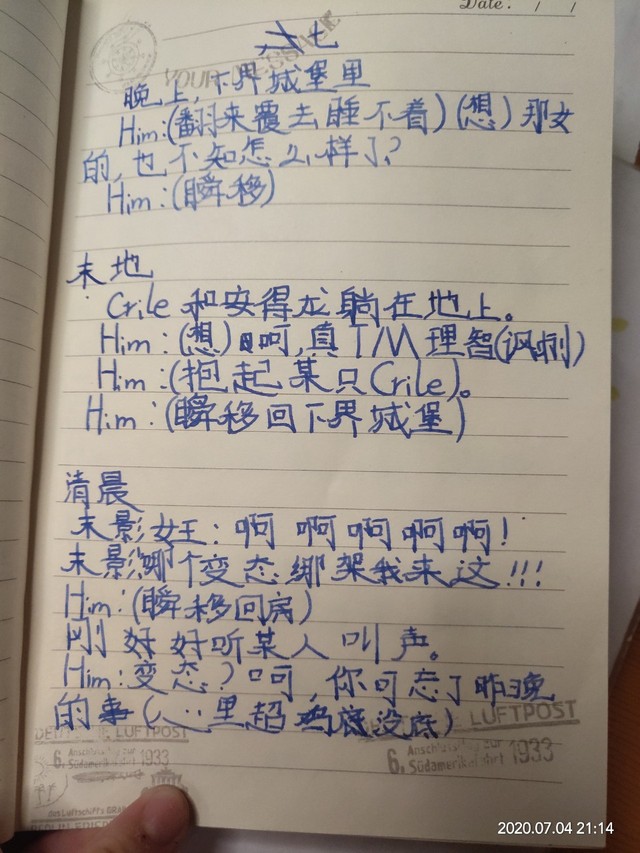 Date: / /
六七
YOUR MESSAGE
晚上,下界城堡里
Him:(翻来覆去睡不着)(想)那女
的,也不知怎么样了?
Him:(瞬移)
末地
Crile和安得龙躺在地上。
Him:(想)呵,真TM理智(讽刺)
Him:(抱起某只Crile)。
Him:(瞬移回下界城堡)
清晨
末影女王:啊啊啊啊啊!
末影哪个变态绑架我来这!!!
Him:(瞬移回房)
刚好好听某人叫声。
Him:变态?呵,你可忘了昨晚
的事(心里超 没底)
LUFTPOST
LUFTPOST
6. Anschlussflug zur
Südamerikafahrt 1933
6. Anschlussflug zur
Südamerikafahrt 1933
2020.07.04 21:14